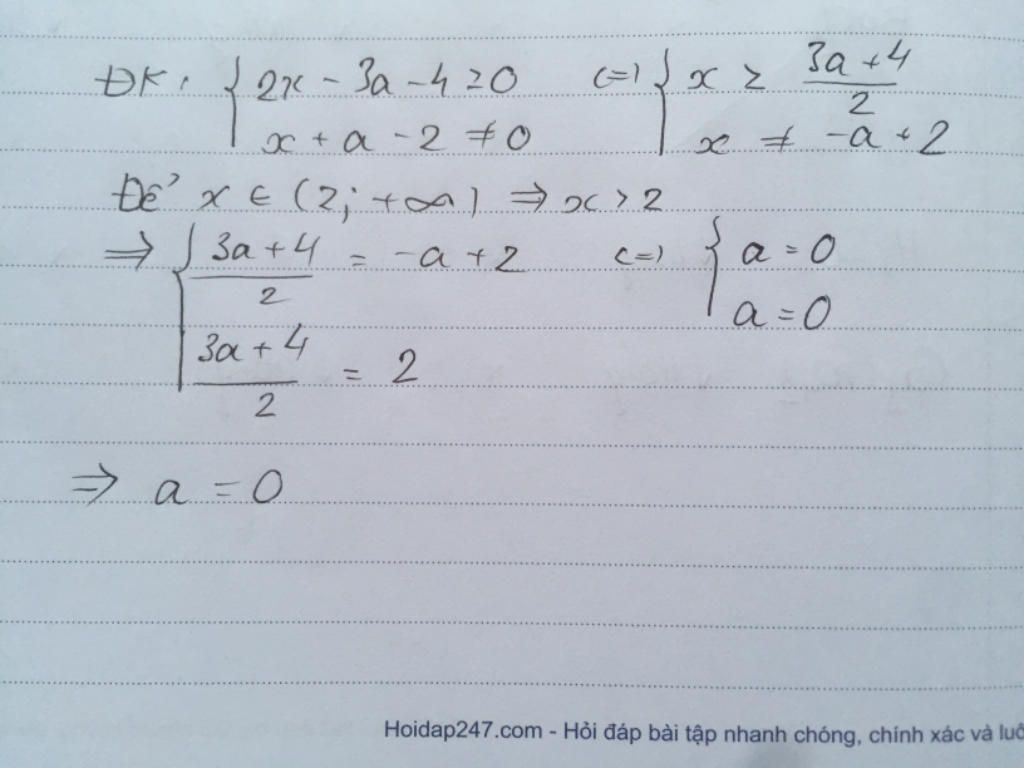 ĐK: { 2x - 3a - 4 ≥ 0 <=> { x ≥ (3a + 4)/2
x + a - 2 ≠ 0 x ≠ -a + 2
Để x ∈ (2; +∞) ⇒ x > 2
⇒ { (3a + 4)/2 = -a + 2 <=> { a = 0
(3a + 4)/2 = 2 a = 0
⇒ a = 0
Hoidap247.com - Hỏi đáp bài tập nhanh chóng, chính xác và